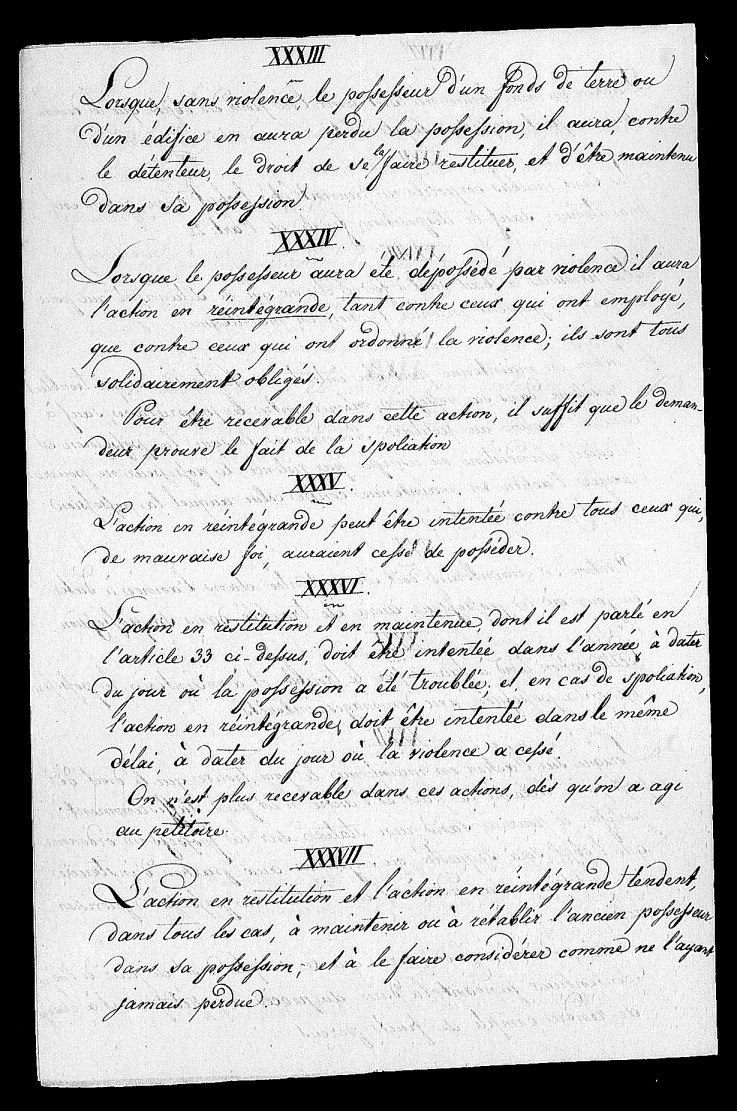 XXXIII
Lorsque, sans violence, le possesseur d'un fonds de terre ou
d'un édifice en aura perdu la possession, il aura, contre
le détenteur, le droit de se la faire restituer, et d'être maintenu
dans sa possession
XXXIV.
Lorsque le possesseur aura été dépossédé par violence il aura
l'action en réintégrande, tant contre ceux qui ont employé,
que contre ceux qui ont ordonné la violence; ils sont tous
solidairement obligés.
Pour être recevable dans cette action, il suffit que le deman-
deur prouve le fait de la spoliation
XXXV.
L'action en réintégrande peut être intentée contre tous ceux qui,
de mauvaise foi, auraient cessé de posséder.
XXXVI.
L'action en restitution et en maintenue dont il est parlé en
l'article 33 ci-dessus, doit être intentée dans l'année, à dater
du jour où la possession a été troublée; et, en cas de spoliation,
l'action en réintégrande, doit être intentée dans le même
délai, à dater du jour où la violence a cessé
On n'est plus recevable dans ces actions, dès qu'on a agi
au pétitoire.
XXXVII.
L'action en restitution et l'action en réintégrande tendent,
dans tous les cas, à maintenir ou à rétablir l'ancien possesseur
dans sa possession; et à le faire considérer comme ne l'ayant
jamais perdue.